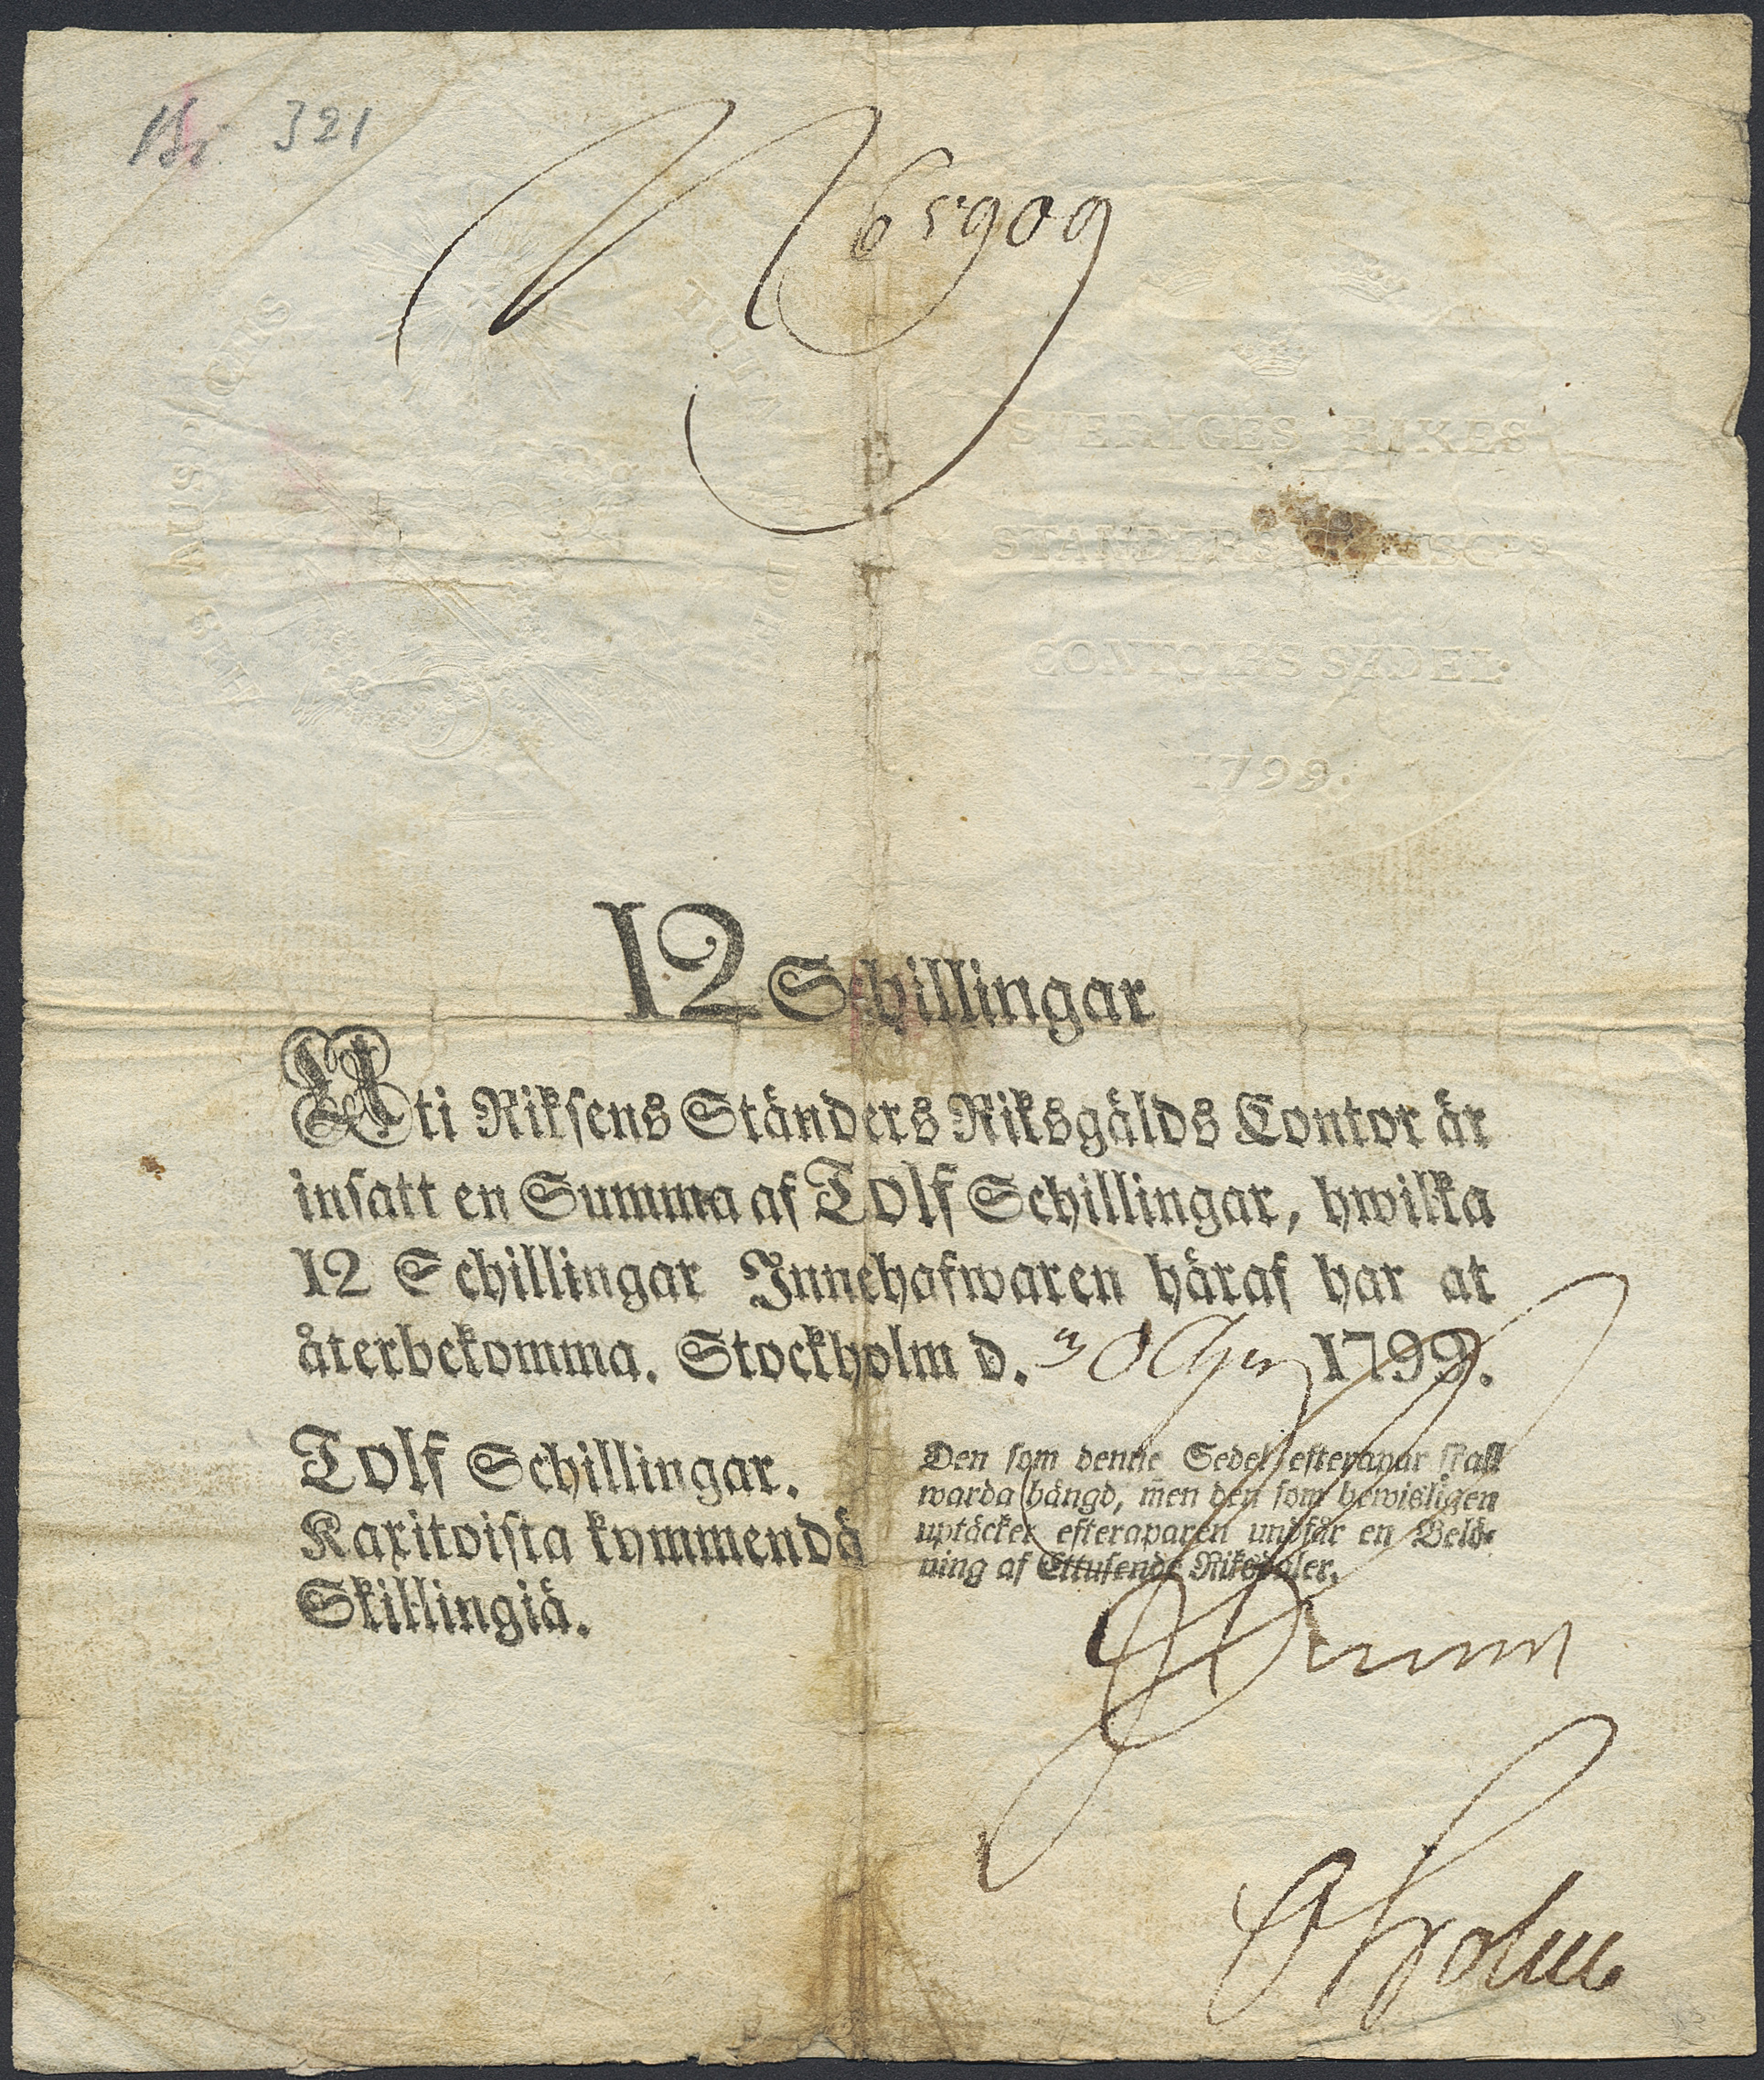 321
N 65909
AUSPICIIS
TUTA
SVERIGES RIKES
STANDERS
CONTOIRS SEDEL.
1799.
12 Schillingar
Uti Riksens Ständers Riksgälds Contor är
insatt en Summa af Tolf Schillingar, hwilka
12 Schillingar Innehafwaren häraf har at
återbekomma. Stockholm d. 3 1799.
Tolf Schillingar.
Kaxitoista kymmendä
Skillingiä.
Den som denne Sedel efterapar skall
warda hängd, men den som bewisligen
uptäcker efteraparen undfår en Belö-
ning af Ettusende Riksdaler.
Holm